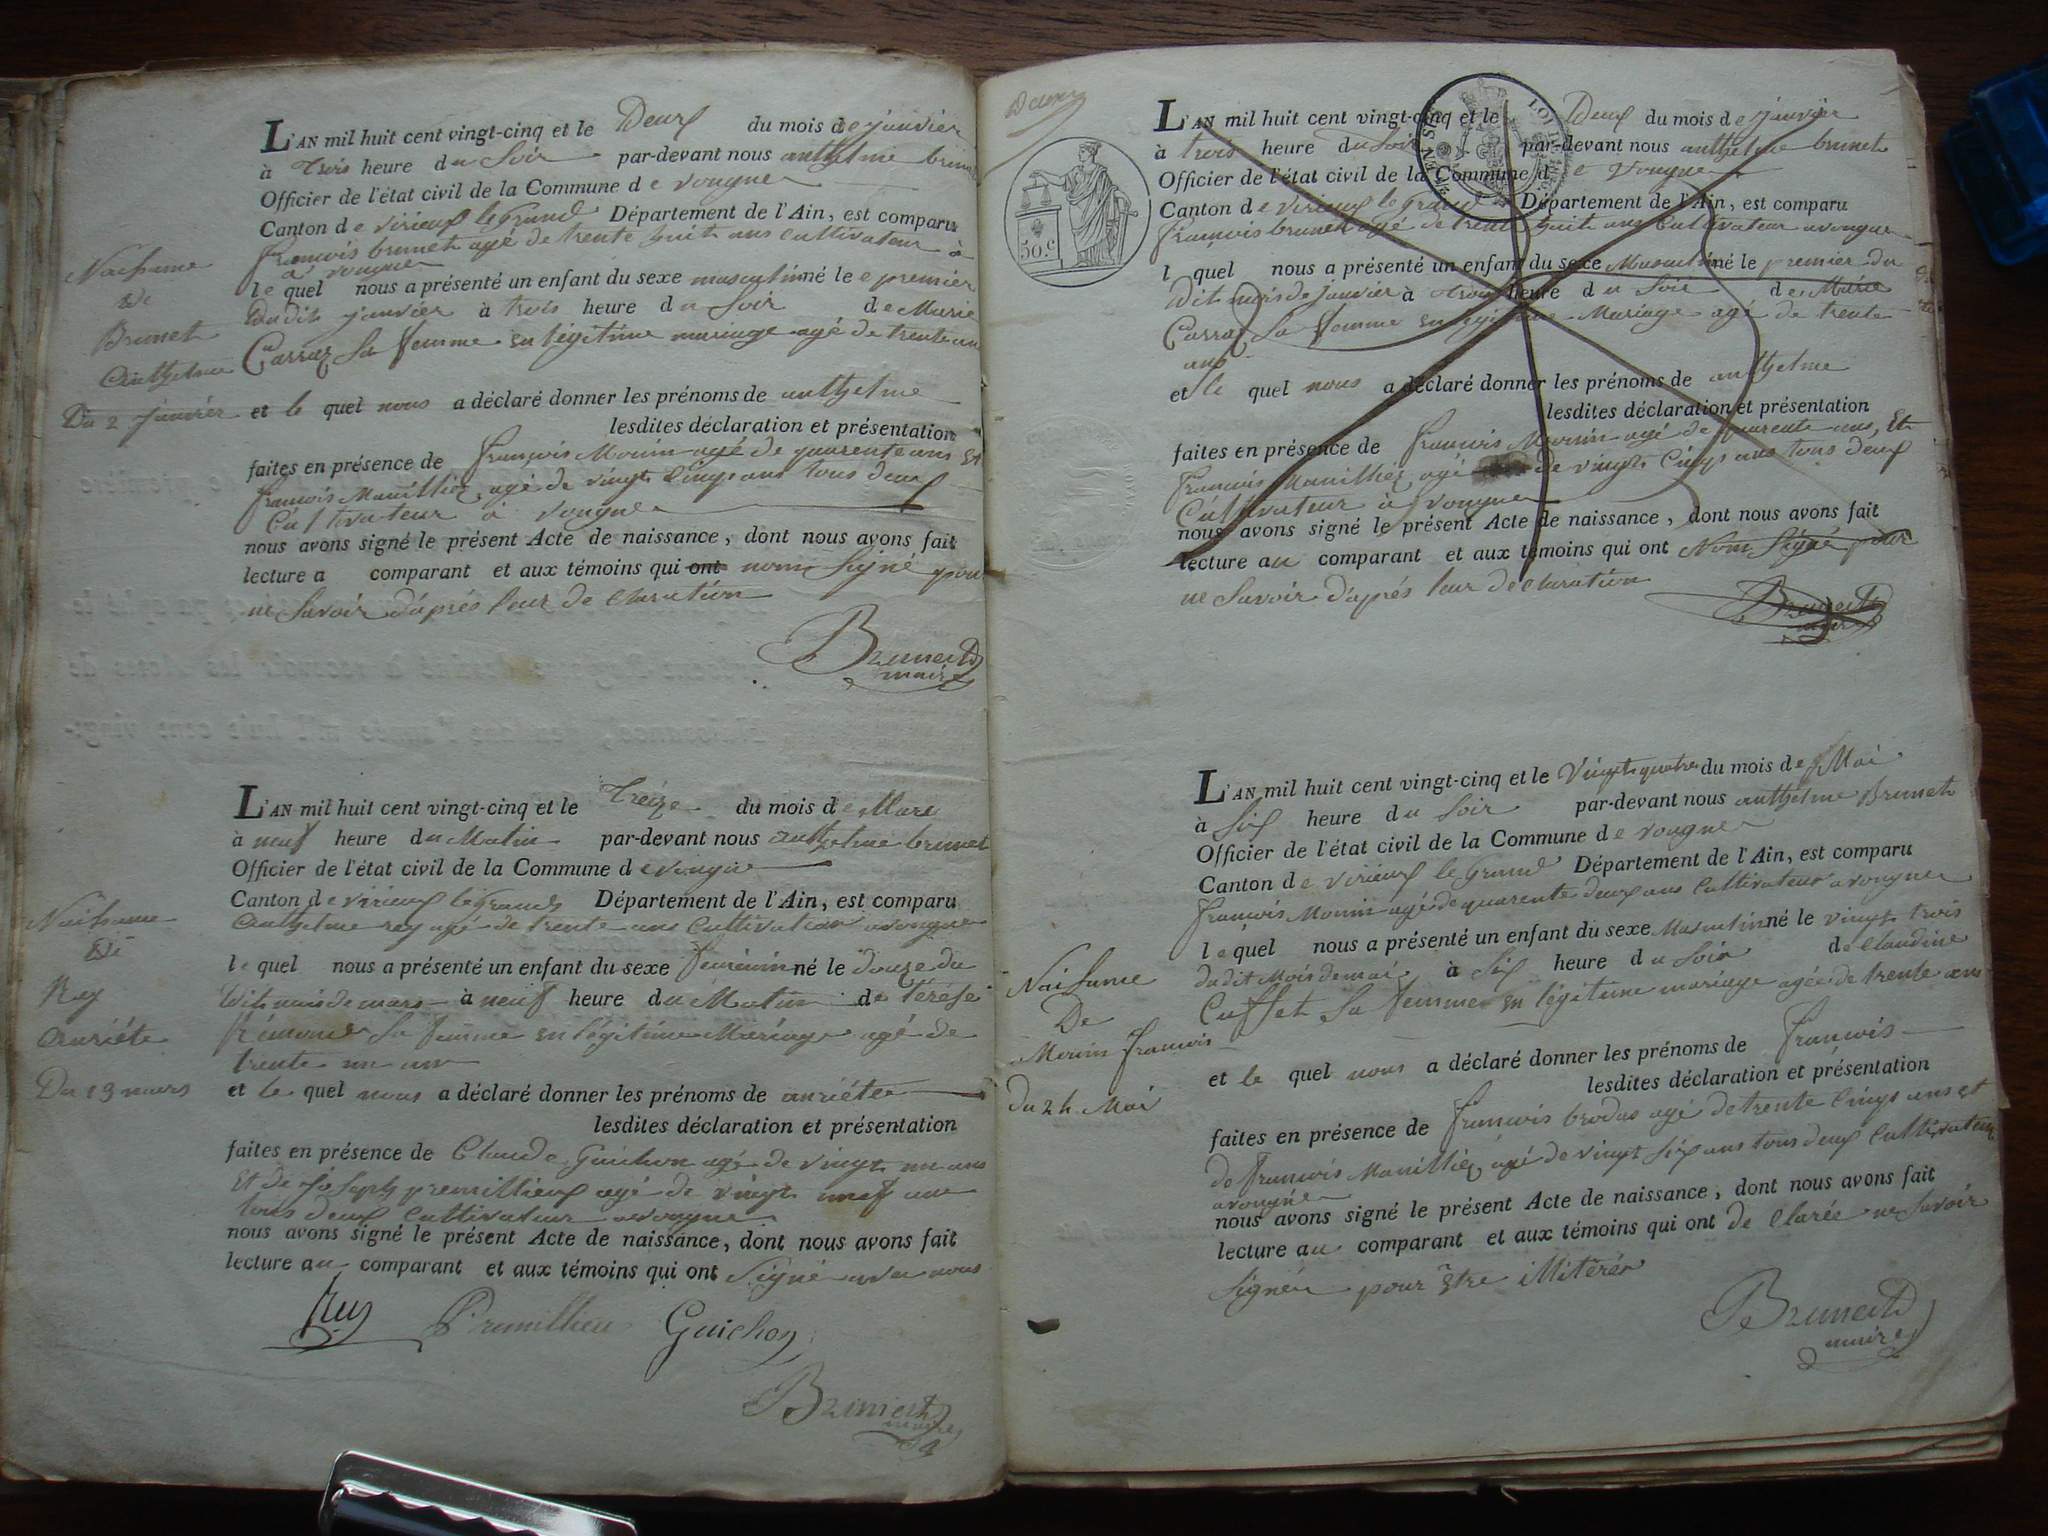 L'AN mil huit cent vingt-cinq et le Deux du mois de janvier
à trois heure du Soir par-devant nous anthelme brunet
Officier de l'état civil de la Commune de vongne
Canton de virieux le Grand Département de l'Ain, est comparu
françois brunet agé de trente huit ans cultivateur à
a vongne
lequel nous a présenté un enfant du sexe masculin né le premier
dudit janvier à trois heure du Soir de Marie
Carraz Sa femme en légitime mariage agé de trente ans
et le quel nous a déclaré donner les prénoms de anthelme
lesdites déclaration et présentation
faites en présence de françois Monin agé de quarente ans Et
françois Manilliez agé de vingt Cinq ans tous deux
Cultivateur à vongne
nous avons signé le présent Acte de naissance, dont nous avons fait
lecture a comparant et aux témoins qui ont nom Signé pour
ne Savoir d'après leur de claration
Brunet
maire
Naissance
De
Brunet
Anthelme
Du 2 janvier
L'AN mil huit cent vingt-cinq et le Treize du mois de Mars
à neuf heure du Matin par-devant nous anthelme brunet
Officier de l'état civil de la Commune de vongne
Canton de virieux le Grand Département de l'Ain, est comparu
Anthelme rey agé de trente ans Cultivateur a vongne
le quel nous a présenté un enfant du sexe feminin né le Douze du
dit mois de mars à neuf heure du Matin de Térése
femme en légitime Mariage agé de
trente un ans
et le quel nous a déclaré donner les prénoms de anriéte
lesdites déclaration et présentation
faites en présence de Claude Guichon agé de vingt un ans
Et de Joseph premillieux agé de vingt neuf ans
tous deux Cultivateur a vongne
nous avons signé le présent Acte de naissance, dont nous avons fait
lecture au comparant et aux témoins qui ont Signé avec nous
Rey Premillieu Guichon
Brunet
maire
Naissance
De
Rey
Anriéte
Du 13 mars
50.c
L'AN mil huit cent vingt-cinq et le Deux du mois de janvier
à trois heure du Soir par-devant nous anthelme brunet
Officier de l'état civil de la Commune de Vongne
Canton de virieux le Grand Département de l'Ain, est comparu
françois brunet agé de trente huit ans Cultivateur a vongne
l quel nous a présenté un enfant du sexe Masculin né le premier du
dit mois de janvier à trois heure du Soir de Marie
Carraz Sa femme en légitime Mariage agé de trente
ans
et le quel nous a déclaré donner les prénoms de anthelme
lesdites déclaration et présentation
faites en présence de françois Monin agé de quarente ans Et
françois Manilliez agé de vingt Cinq ans tous deux
Cultivateur a vongne
nous avons signé le présent Acte de naissance, dont nous avons fait
lecture au comparant et aux témoins qui ont Nom Signé pour
ne Savoir d'après leur declaration
Brunet
maire
L'AN mil huit cent vingt-cinq et le Vingt quatre du mois de Mai
à Six heure du Soir par-devant nous anthelme Brunet
Officier de l'état civil de la Commune de vongne
Canton de virieux le Grand Département de l'Ain, est comparu
françois Monin agé de quarente deux ans Cultivateur a vongne
lequel nous a présenté un enfant du sexe Masculin né le vingt trois
dudit Mois de mai à Six heure du Soir de Claudine
Cuffet Sa femme en légitime mariage agée de trente ans
et le quel nous a déclaré donner les prénoms de françois
lesdites déclaration et présentation
faites en présence de françois brodas agé de trente Cinq ans et
de françois Manilliez agé de vingt Six ans tous deux Cultivateur
a vongne
nous avons signé le présent Acte de naissance, dont nous avons fait
lecture au comparant et aux témoins qui ont de Clarée ne Savoir
Signér pour Etre illitérér
Brunet
maire
Naissance
De
Monin françois
du 24 Mai